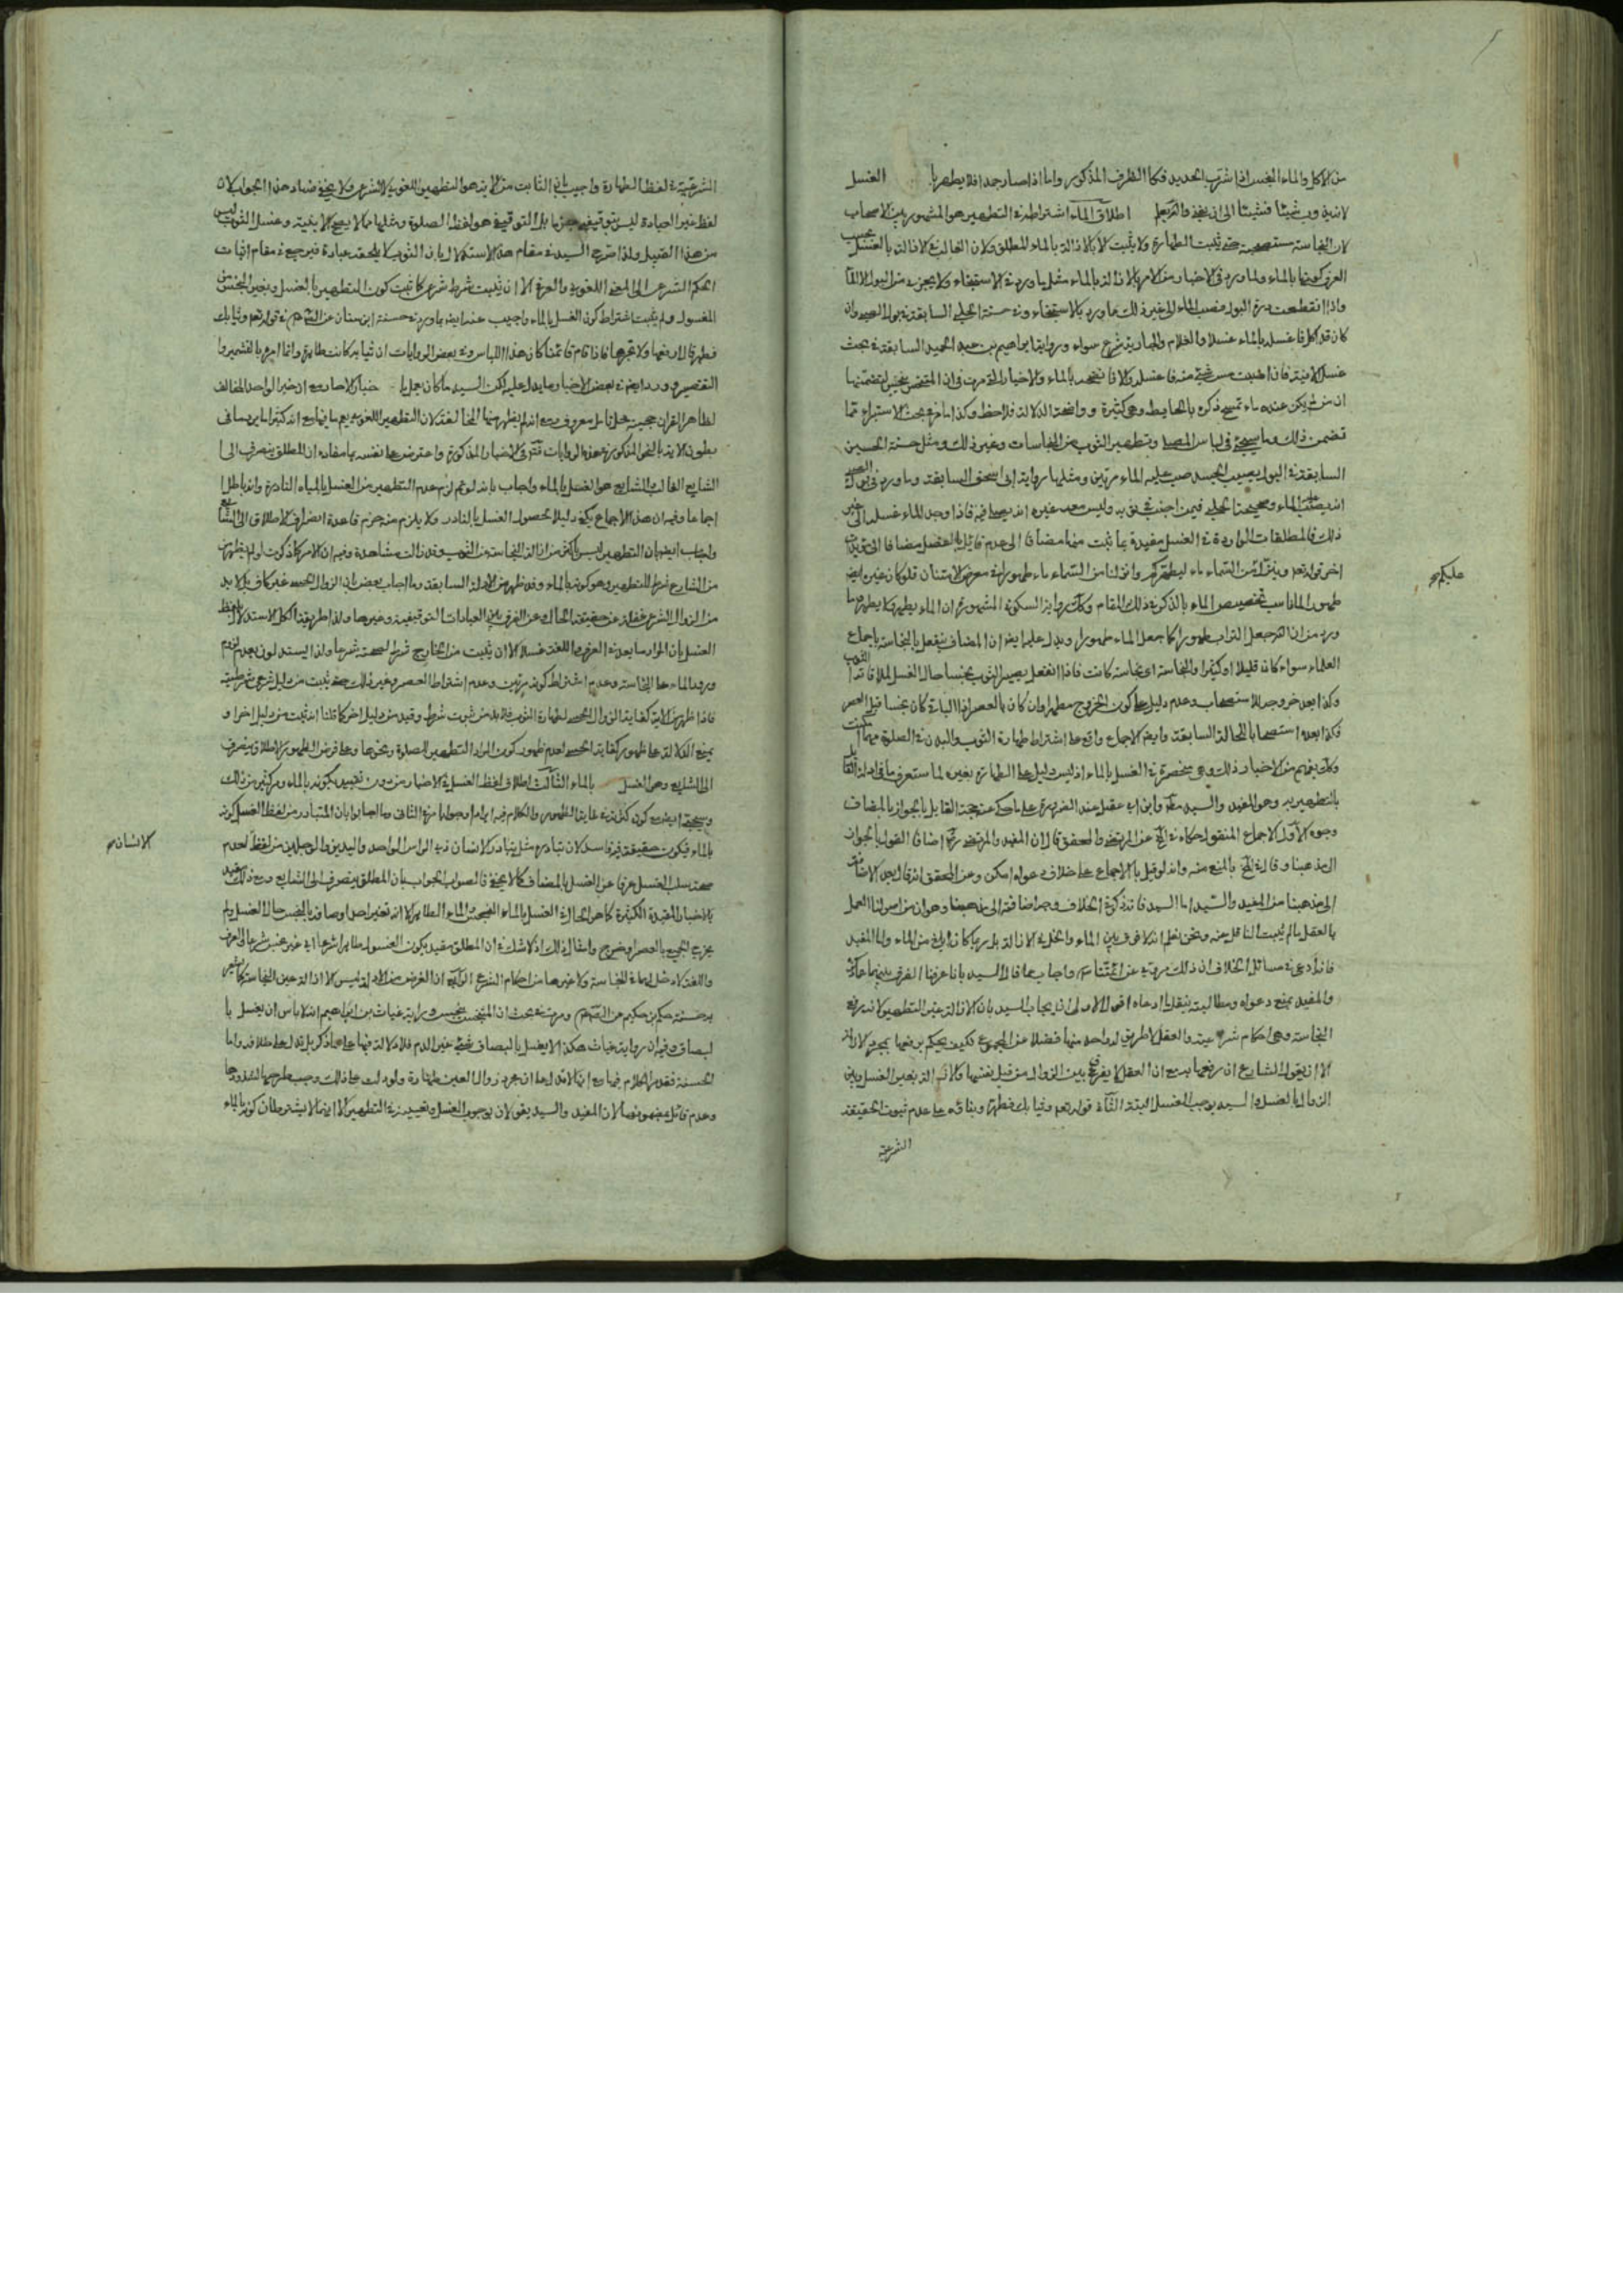 من الاكل والماء النجس اذا شرب الحديد فكا الظرف المذكور واما اذا صار جمدا فلا يطهر با الغسل
لانه يذوب شيئا فشيئا الى ان ينفذ والله يعلم اطلاق الماء اشتراطه في التطهير هو المشهور بين الاصحاب
لان النجاسة مستصحبة حتى يثبت الطهارة ولا يثبت الا بالازالة بالماء المطلق ولان الغالب في الازالة بالغسل بحسب
العرف كونها بالماء ولما ورد في الاخبار من الامر بالازالة بالماء مثل ما ورد في الاستنجاء ولا يجزي من البول الا الماء
واذا انقطعت درة البول فصب الماء الى غير ذلك مما ورد بالاستنجاء وفي حسنة الحلبي السابقة في بول الصبي وان
كان قد اكل فاغسله بالماء غسلا والغلام والجارية شرع سواء ورواية ابراهيم بن عبد الحميد السابقة في بحث
ان من لم يكن عنده ماء تمسح ذكره بالحايط وهي كثيرة وواضحة الدلالة فلاحظ وكذا ما مر في بحث الاستبراء مما
تضمن ذلك وما سيجيء في لباس المصلي وتطهير الثوب من النجاسات وغير ذلك ومثل حسنة الحسين
السابقة في البول يصيب الجسد صب عليه الماء مرتين ومثلها رواية ابي اسحق السابقة وما ورد في بول الصبي
انه يصب عليه الماء وصحيحة الحلبي فيمن اجنب في ثوبه وليس معه غيره انه يصلي فيه فاذا وجد الماء غسله الى غير
ذلك فالمطلقات الواردة في الغسل مقيدة بما ثبت منها مضافا الى عدم قائل بالفصل مضافا الى مؤيدات
اخر قوله تعالى وينزل من السماء ماء ليطهركم وانزلنا من السماء ماء طهورا في معرض الامتنان فلو كان غيره ايضا
عليكم صح
طهورا لما ناسب تخصيص الماء بالذكر في ذلك المقام وكذا رواية السكوني المشهورة ان الماء يطهر ولا يطهر وما
ورد من ان الله جعل التراب طهورا كما جعل الماء طهورا ويدل عليه ايضا ان المضاف ينفعل بالنجاسة باجماع
العلماء سواء كان قليلا او كثيرا والنجاسة اي نجاسة كانت فاذا انفعل يصير الثوب نجسا حال الغسل لملاقاته الثوب
وكذا بعد خروجه للاستصحاب وعدم دليل على كون الخروج مطهرا وان كان بالعصر اذا الباقي كان نجسا قبل العصر
فكذا بعده استصحابا للحالة السابقة وايضا الاجماع واقع على اشتراط طهارة الثوب والبدن في الصلوة مهما امكنت
بالتطهير به وهو المفيد والسيد
وجوه الاول الاجماع المنقول حكاه في عن المرتضى والمحقق قال ان المفيد والمرتضى اضافا القول بالجواز
الى مذهبنا وقال بالمنع منه وانه لو قيل بالاجماع على خلاف دعواه امكن وعن المحقق انه قال بعد الاضافة
الى مذهبنا من المفيد والسيد اما السيد فانه ذكر في الخلاف وجه اضافته الى مذهبنا وهو ان من اصولنا العمل
بالعقل ما لم يثبت الناقل عنه ونحن نعلم انه لا فرق بين الماء والخل في الازالة بل ربما كان ابلغ من الماء واما المفيد
فانه ادعى في مسائل الخلاف ان ذلك مروي عن ائمتنا واجاب عما قال السيد بانا عرفنا الفرق بينهما
والمفيد بمنع دعواه ومطالبته بنقل ما ادعاه اقول الاولى ان يجاب السيد بان الازالة غير التطهير لانه رفع
النجاسة وهي احكام شرعية والعقل لا طريق له واحد منها فضلا عن المجموع فكيف يحكم برفعها بمجرد الازالة
الا ان يقول الشارع ان رفعها بها مع ان العقل لا يفرق بين الزوال من قبل نفسها والازالة بغير الغسل وبين
الزوال بالغسل والسيد يوجب الغسل البتة الثاني قوله تعالى وثيابك فطهر وبناؤه على عدم ثبوت الحقيقة
الشرعية
الشرعية في لفظ الطهارة واجيب بان الثابت من الاية هو التطهير اللغوي لا الشرعي ولا يخفى فساد هذا الجواب لان
لفظ غير العبادة ليس بتوقيفي جزما بل التوقيفي هو لفظ الصلوة ومثلها مما لا يصح الا بنية وغسل الثوب ليس
من هذا القبيل ولذا صرح السيد في مقام هذا الاستدلال بان الثوب لا يلحقه عبادة فيرجع في مقام اثبات
الحكم الشرعي الى المعنى اللغوي والعرفي الا ان يثبت شرط شرعي كما ثبت كون التطهير بالغسل وبغير النجس من
المغسول ولم يثبت اشتراط كون الغسل بالماء واجيب عنه ايضا بما ورد في حسنة ابن سنان عن في قوله تعالى وثيابك
فطهر قال ارفعها ولا تجرها فاذا قام قائمنا كان هذا اللباس وفي بعض الروايات ان ثيابه كانت طاهرة وانما امره بالتشمير وا
التقصير وورد ايضا في بعض الاخبار ما يدل عليه لكن السيد ما كان يعمل با خبار الاحاد مع ان خبر الواحد المخالف
لظاهر القران حجيته محل تامل معروف ومع انه لم يظهر منها المخالفة لان التطهير اللغوي يعم ما فيها مع انه كثيرا ما يرد معاني
بطون الاية بالنحو المذكور في هذه الروايات في الاخبار المذكورة واعترض على نفسه بما مفاده ان المطلق ينصرف الى ا
لشايع الغالب والشايع هو الغسل بالماء واجاب بانه لو تم لزم عدم التطهير من الغسل بالمياه النادرة وانه باطل ا
جماعا وفيه ان هذا الاجماع يكون دليلا لحصول الغسل بالنادر ولا يلزم منه خرم قاعدة انصراف الاطلاق الى الشايع
واجاب ايضا بان التطهير ليس باكثر من ازالة النجاسة عن الثوب وقد زالت مشاهدة وفيه ان الامر كما ذكرت لو لم يظهر
من الشارع شرط للتطهير وهو كونه بالماء وقد ظهر من الادلة السابقة وما اجاب بعض بان الزوال الحسي غير كاف بل لابد
من الزوال الشرعي غفلة عن حقيقة الحال وعن الفرق بين العبادات التوقيفية وغيرها ولذا طريقة الكل الاستدلال بلفظ
الغسل بان المراد ما يعد في العرف واللغة غسلا الا ان يثبت من الخارج شرط لصحته شرعا ولذا يستدلون بعدم لزوم
ورود الماء على النجاسة وعدم اشتراط كونه مرتين وعدم اشتراط العصر وغير ذلك حتى يثبت من دليل شرعي شرطيته
فاذا ظهر من الاية كفاية الزوال الحسي لطهارة الثوب فلابد من ثبوت شرط وقيد من دليل اخر كما قلنا انه ثبت من دليل اخر او
يمنع الدلالة على ظهور كفاية الحسي لعدم ظهور كون المراد التطهير للصلوة ونحوها وعلى فرض الظهور الاطلاق ينصرف
الى الشايع وهي الغسل بالماء الثالث اطلاق لفظ الغسل في الاخبار من دون تقييد بكونه بالماء ومر كثير من ذلك
وسيجيء ايضا مع كون كثرته غاية الظهور والكلام فيه ايرادا وجوابا مر في الثاني وما اجابوا بان المتبادر من لفظ الغسل كونه
بالماء فيكون حقيقة فيه فاسد لان تبادره مثل تبادر الانسان ذي الراس الواحد واليدين والرجلين من لفظ لعدم
الانسان صح
صحة سلب الغسل عرفا عن الغسل بالمضاف كما لا يخفى فالصواب الجواب بان المطلق ينصرف الى الشايع ومع ذلك مقيد
بالاخبار المقيدة الكثيرة كما هو الحال في الغسل بالماء النجس والماء الطاهر الا انه تغير احد اوصافه بالنجس حال الغسل ولم
يخرج الجميع بالعصر وخرج وامثال ذلك اذ لا شك في ان المطلق مقيد بكون المغسول طاهرا شرعا اي غير نجس شرعا والعرف
واللغة لا دخل لهما في النجاسة ولا غيرها من احكام الشرع الرابع ان الغرض من الادلة ليس الا ازالة عين النجاسة كما يشير
به حسنة حكم بن حكيم عن ومرت في بحث ان المتنجس ينجس ورواية غياث بن ابراهيم انه لا باس ان يغسل با
لبصاق وفيه ان رواية غياث هكذا لا يغسل بالبصاق شيء غير الدم فلا دلالة فيها على ما ذكر بل تدل على خلافه واما
الحسنة فقد مر الكلام فيها مع انها لا تدل على ان مجرد زوال العين طهارة ولو دلت على ذلك وجب طرحها لشذوذها
وعدم قائل بمضمونها لان المفيد والسيد يقولان بوجوب الغسل وتعيينه في التطهير الا انهما لا يشترطان كونه بالماء